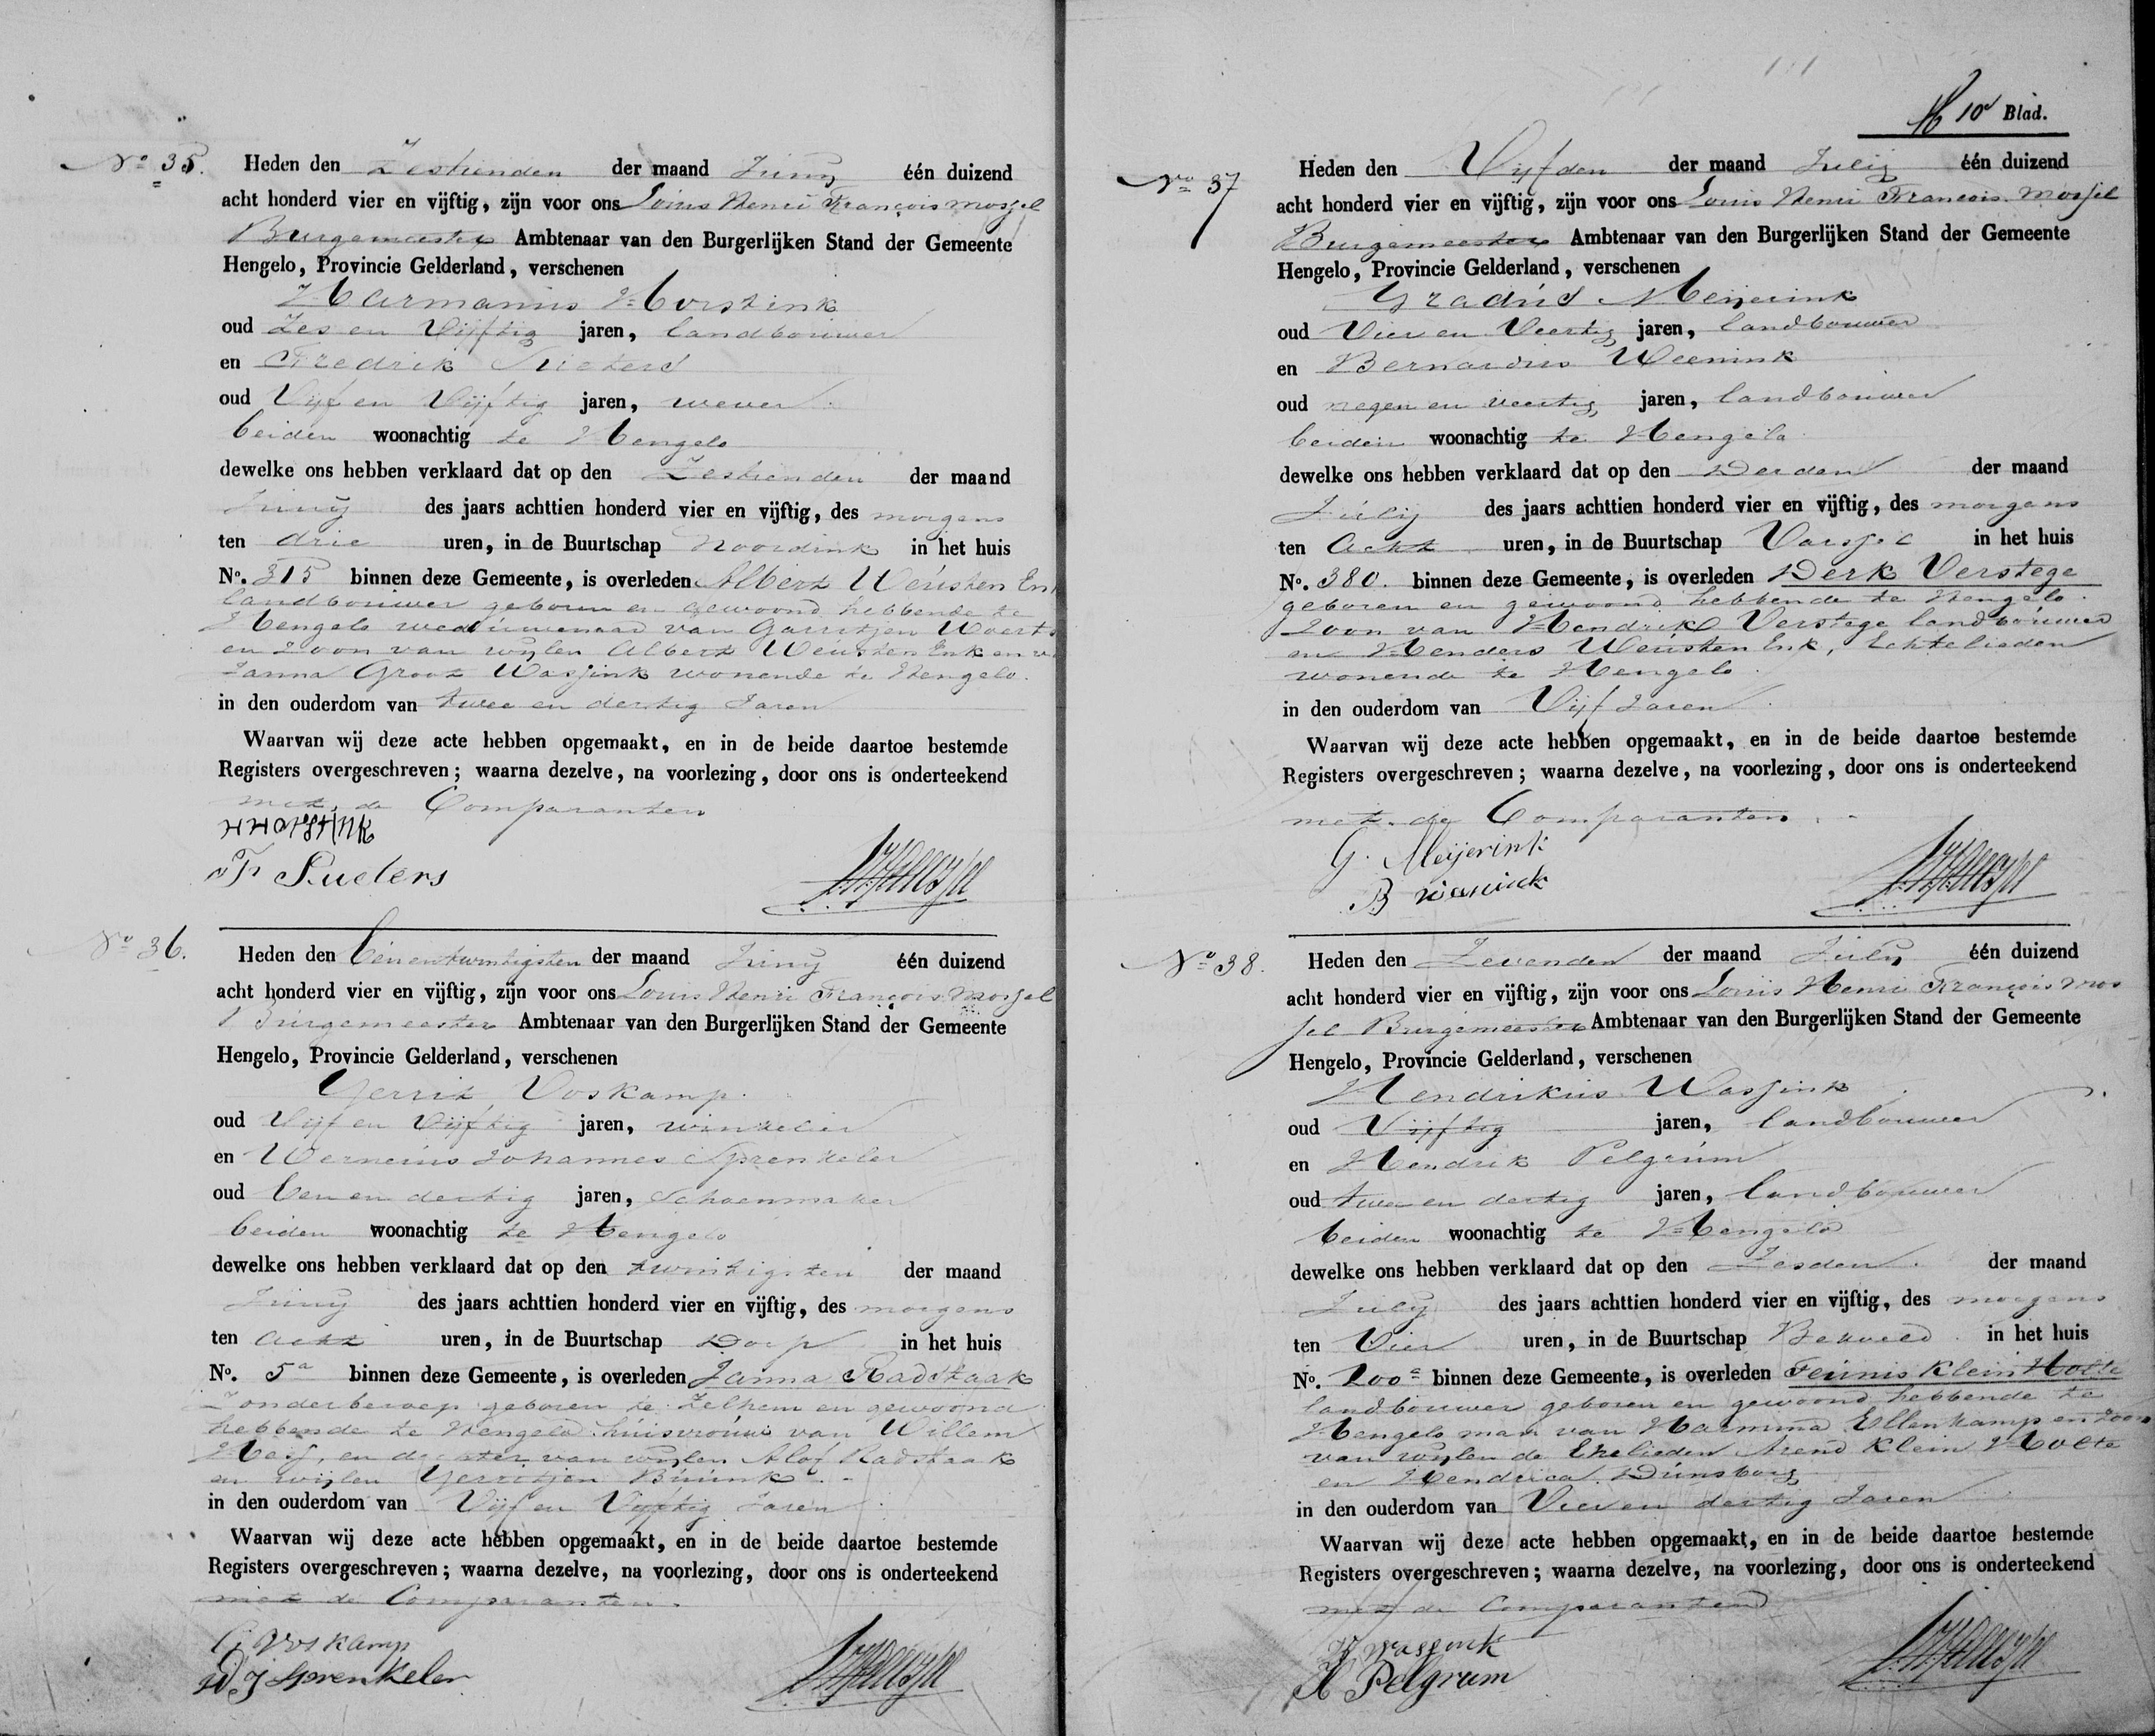 No 35.
Heden den Zestienden der maand Juny één duizend
acht honderd vier en vijftig, zijn voor ons Louis Henri François Mossel
Burgemeester Ambtenaar van den Burgerlijken Stand der Gemeente
Hengelo, Provincie Gelderland, verschenen
Harmanus Horstink
oud Zes en Vijftig jaren, landbouwer
en Fredrik
oud Vijf en Vijftig jaren, wever
beiden woonachtig te Hengelo
dewelke ons hebben verklaard dat op den Zestienden der maand
Juny des jaars achttien honderd vier en vijftig, des morgens
ten drie uren, in de Buurtschap Noordink in het huis
No. 315 binnen deze Gemeente, is overleden Albert Weústen En
landbouwer geboren en gewoond hebbende te
Hengelo weduwenaar van Garritjen
en Zoon van wylen Albert Weústen Enk en
Janna Groot Wassink wonende te Hengelo.
in den ouderdom van twee en dertig Jaren
Waarvan wij deze acte hebben opgemaakt, en in de beide daartoe bestemde
Registers overgeschreven; waarna dezelve, na voorlezing, door ons is onderteekend
met de Comparanten
H HORSTINK
No 36.
Heden den Eenentwintigsten der maand Juny één duizend
acht honderd vier en vijftig, zijn voor ons Louis Henri François Mossel
Burgemeester Ambtenaar van den Burgerlijken Stand der Gemeente
Hengelo, Provincie Gelderland, verschenen
Gerrit Voskamp
oud Vijf en Vijftig jaren, winkelier
en Werneius Johannes Sprenkeler
oud Een en dertig jaren, Schoenmaker
beiden woonachtig te Hengelo
dewelke ons hebben verklaard dat op den twintigsten der maand
Juny des jaars achttien honderd vier en vijftig, des morgens
ten acht uren, in de Buurtschap Dorp in het huis
No. 5a binnen deze Gemeente, is overleden Janna Radstaak
Zonder beroep geboren te Zelhem en gewoond
hebbende te Hengelo huisvrouw van Willem
Hass, en dogter van wylen Alof Radstaak
en wijlen Gerritjen
in den ouderdom van Vijf en Vijftig Jaren
Waarvan wij deze acte hebben opgemaakt, en in de beide daartoe bestemde
Registers overgeschreven; waarna dezelve, na voorlezing, door ons is onderteekend
met de Comparanten.
G Voskamp
W J Sprenkeler
10e Blad.
No 37
Heden den Vijfden der maand Julij één duizend
acht honderd vier en vijftig, zijn voor ons Louis Henri Francois Mossel
Burgemeester Ambtenaar van den Burgerlijken Stand der Gemeente
Hengelo, Provincie Gelderland, verschenen
Gradús Meijerink
oud Vier en Veertig jaren, landbouwer
en Bernardus Weenink
oud negen en veertig jaren, landbouwer
beiden woonachtig te Hengelo
dewelke ons hebben verklaard dat op den Derden der maand
Júlij des jaars achttien honderd vier en vijftig, des morgens
ten Acht uren, in de Buurtschap Varssel in het huis
No. 380. binnen deze Gemeente, is overleden Derk Verstege
geboren en gewoond hebbende te Hengelo.
Zoon van Hendrik Verstege landbouwer
en Henders Weústen Enk, Echtelieden
wonende te Hengelo
in den ouderdom van Vijf Jaren
Waarvan wij deze acte hebben opgemaakt, en in de beide daartoe bestemde
Registers overgeschreven; waarna dezelve, na voorlezing, door ons is onderteekend
met de Comparanten
G. Meijerink
B wenink
No 38.
Heden den Zevenden der maand July één duizend
acht honderd vier en vijftig, zijn voor ons Louis Henri François Mos
sel Burgemeester Ambtenaar van den Burgerlijken Stand der Gemeente
Hengelo, Provincie Gelderland, verschenen
Hendrikus Wassink
oud Vijftig jaren, landbouwer
en Hendrik Pelgrúm
oud twee en dertig jaren, landbouwer
beiden woonachtig te Hengelo
dewelke ons hebben verklaard dat op den Zesden der maand
July des jaars achttien honderd vier en vijftig, des morgens
ten Vier uren, in de Buurtschap Bekveld in het huis
No. 200a binnen deze Gemeente, is overleden Teúnis Klein Holte
landbouwer geboren en gewoond hebbende te
Hengelo man van Harmina Ellenkamp en Zoon
van wylen de Ehelieden Arend Klein Holte
en Hendrica Dúnsborg
in den ouderdom van Vier en dertig Jaren
Waarvan wij deze acte hebben opgemaakt, en in de beide daartoe bestemde
Registers overgeschreven; waarna dezelve, na voorlezing, door ons is onderteekend
met de Comparanten
H Wassink
H Pelgrum